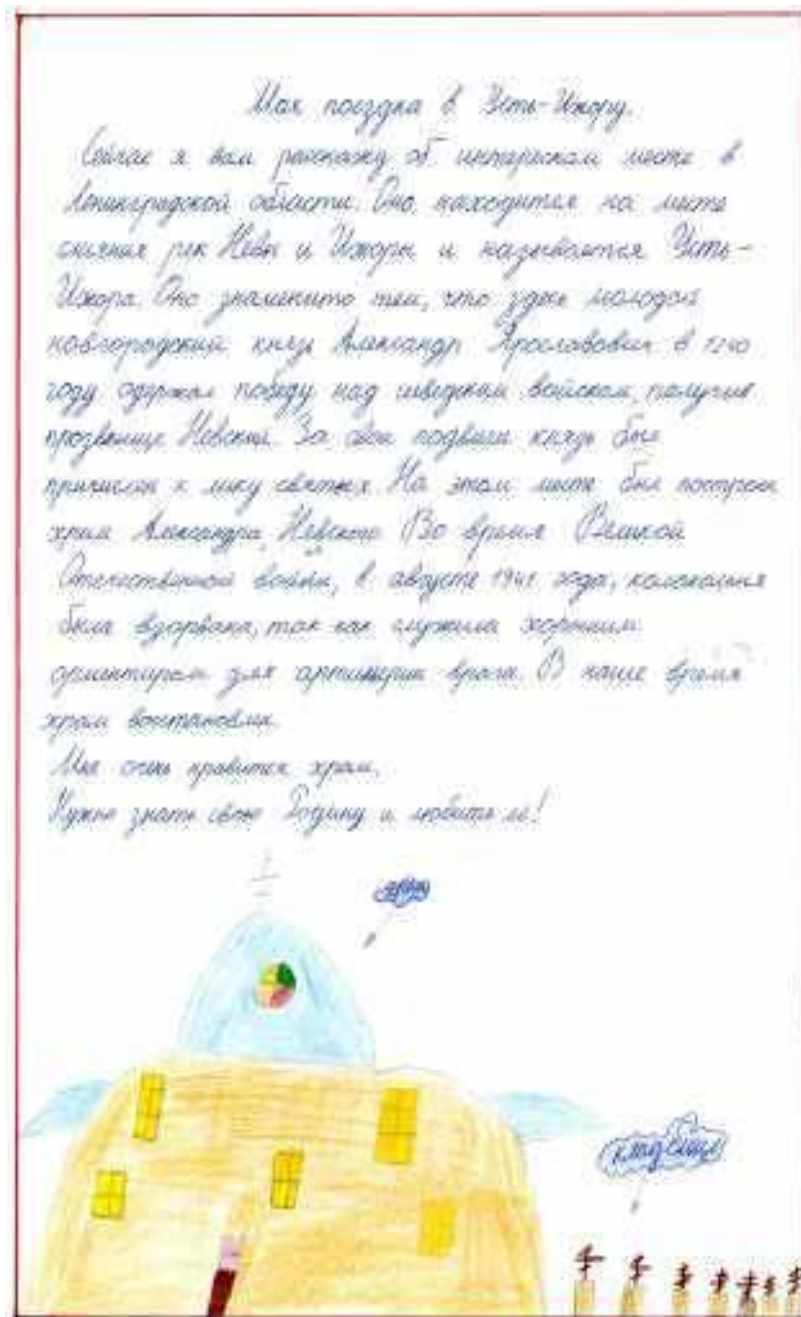 Моя поездка в Усть-Ижору.
Сейчас я вам расскажу об интересном месте в
Ленинградской области. Оно находится на месте
слияния рек Невы и Ижоры и называется Усть-
Ижора. Оно знаменито тем, что здесь молодой
новгородский князь Александр Ярославович в 1240
году одержал победу над шведским войском, получив
прозвище Невский. За свои подвиги князь был
причислен к лику святых. На этом месте был построен
храм Александра Невского. Во время Великой
Отечественной войны, в августе 1941 года, колокольня
была взорвана, так как служила хорошим
ориентиром для артиллерии врага. В наше время
храм восстановили.
Мне очень нравится храм.
Нужно знать свою Родину и любить её!
храм
кладбище